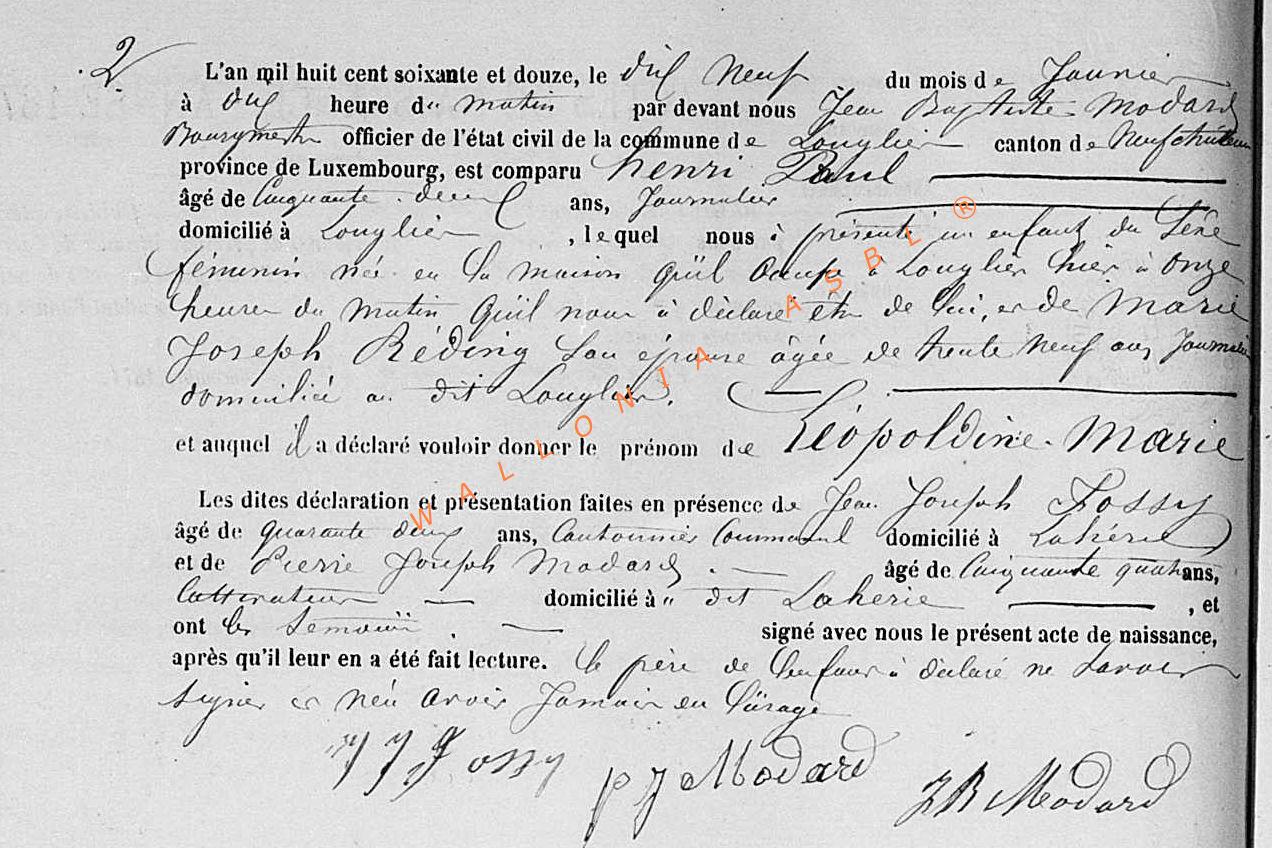 2.
L'an mil huit cent soixante et douze, le dix neuf du mois de Janvier
à dix heure du matin par devant nous Jean Baptiste Modard
Bourgmestre officier de l'état civil de la commune de Longlier canton de Neufchateau
province de Luxembourg, est comparu henri Paul
âgé de Cinquante deux ans, Journalier
domicilié à Longlier, lequel nous à présenté un enfant du Séxe
féminin née en la maison qu'il occupe à Longlier hier à onze
heures du matin qu'il nous à déclaré être de lui, et de Marie
Joseph Réding son épouse âgée de trente neuf ans Journalière
domiciliée au dit Longlier.
et auquel il a déclaré vouloir donner le prénom de Léopoldine Marie
Les dites déclaration et présentation faites en présence de Jean Joseph Fossy
âgé de quarante deux ans, Cantonnier Communal domicilié à Laherie
et de Pierre Joseph Modard âgé de Cinquante quatre ans,
Cultivateur domicilié à " dit Laherie, et
ont les témoins signé avec nous le présent acte de naissance,
après qu'il leur en a été fait lecture. le père de l'enfant à déclaré ne savoir
signer et n'en avoir Jamais eu l'usage
JJ Fossy
pJ Modard
JB Modard
WALLONIA ASBL ®